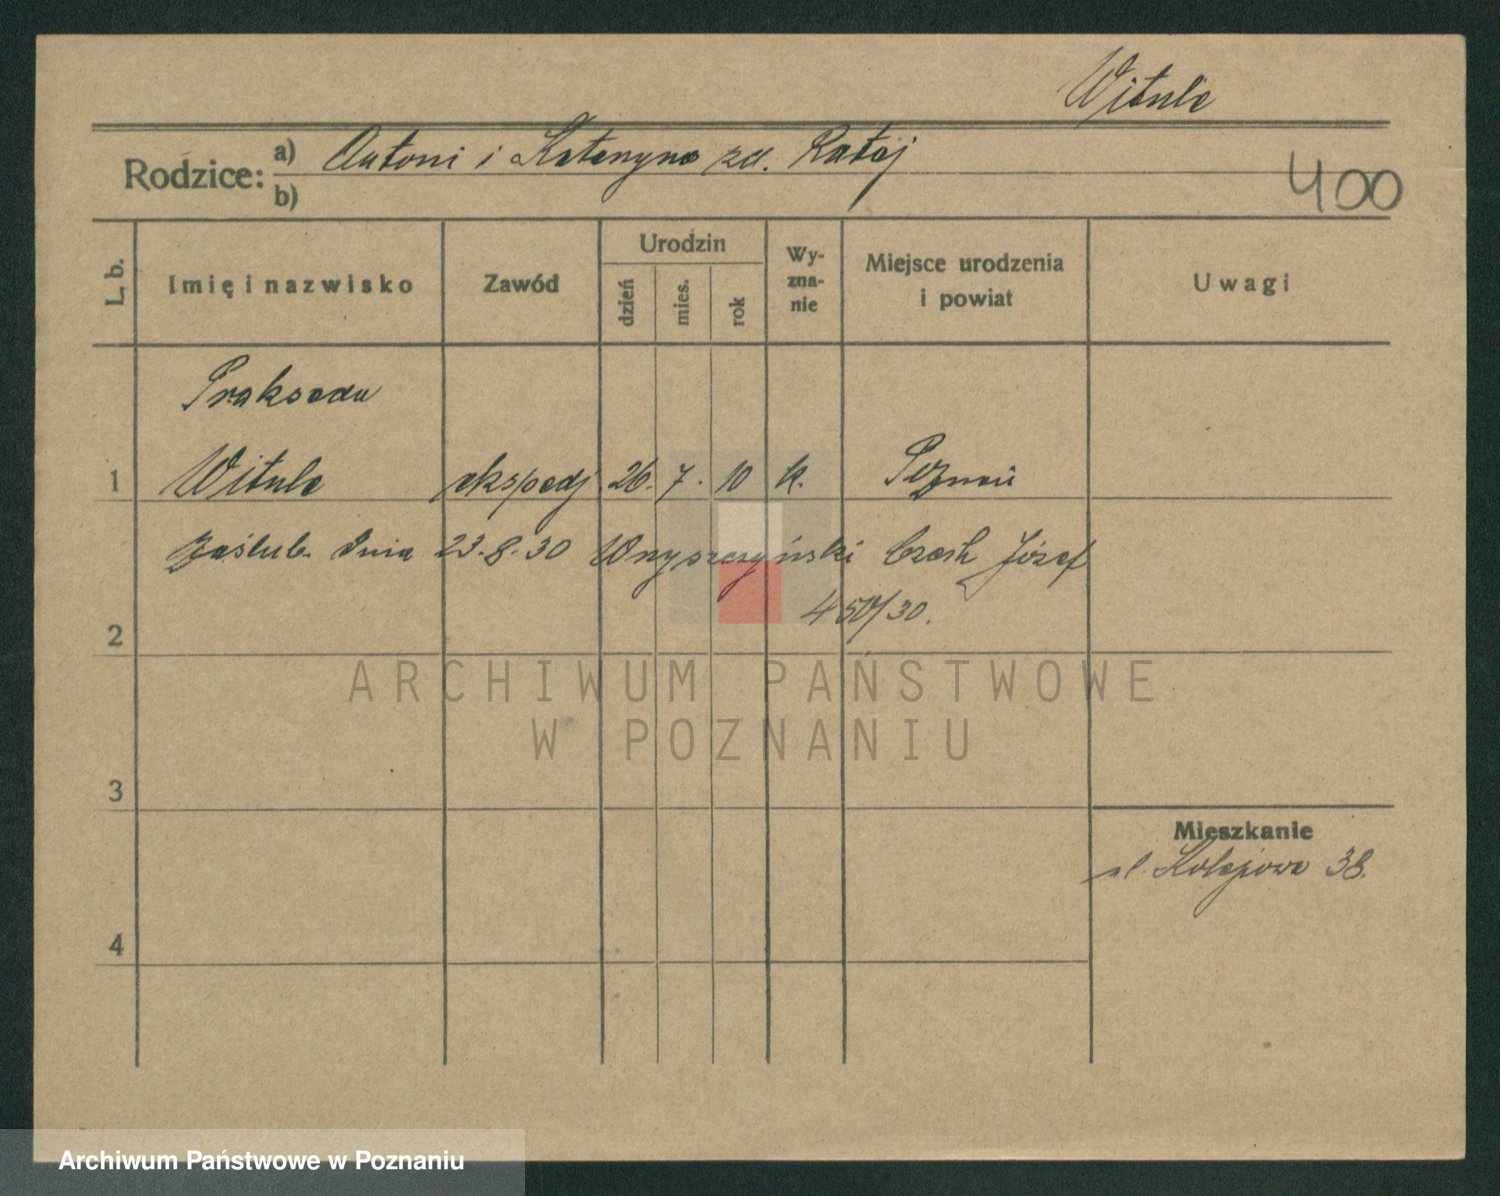 Witula
Rodzice: a) Antoni i Katarzyna zd. Rataj
b)
400
L. b. Imię i nazwisko Zawód Urodzin dzień mies. rok Wy-zna-nie Miejsce urodzenia i powiat Uwagi
Prakseda
1 Witula ekspedj. 26. 7. 10 k. Poznań
zaślub. dnia 23.8.30 Wyszczyński Czesł. Józef
450/30.
2
ARCHIWUM PAŃSTWOWE
W POZNANIU
3
Mieszkanie
ul. Kolejowa 38.
4
Archiwum Państwowe w Poznaniu